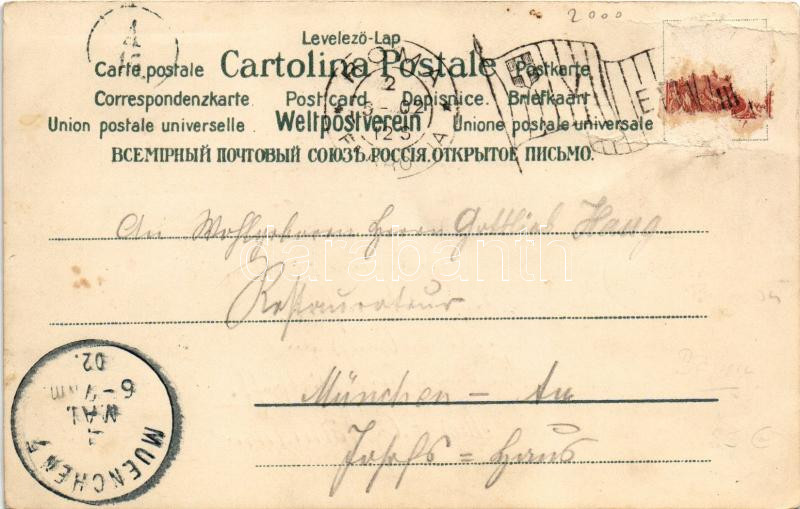 2000
Levelező-Lap
Carte postale Cartolina Postale Postkarte
Correspondenzkarte Postcard Dopisnice Briefkaart
Union postale universelle. Weltpostverein Unione postale universale
ВСЕМІРНЫЙ ПОЧТОВЫЙ СОЮЗЪ. РОССІЯ. ОТКРЫТОЕ ПИСЬМО.
ROMA
FERROVIA
An Wohlgeboren Herrn Gottlieb Haug
Restaurateur
München – Au
Josefs = Haus
MUENCHEN
MAI
6–7
02.
carabanth